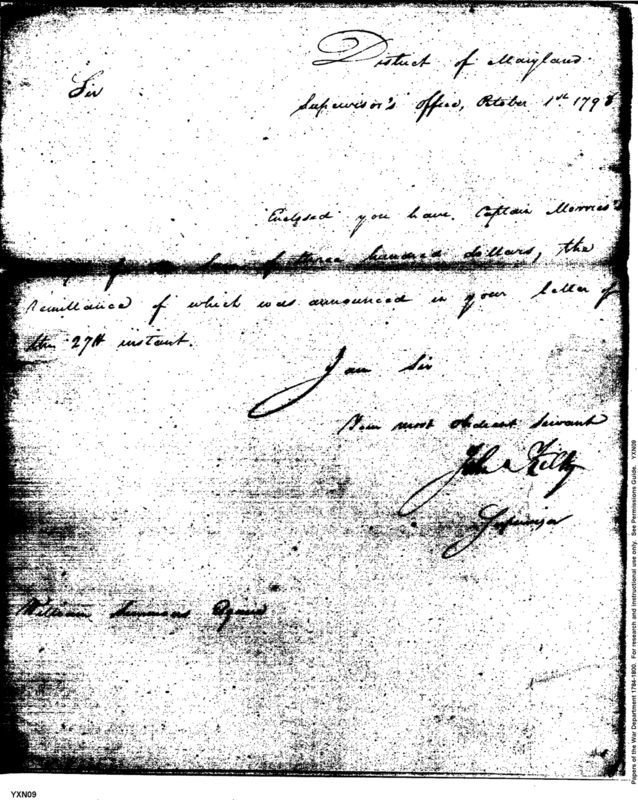 District of Maryland
Sir
Supervisor's Office, October 1st 1798
Enclosed you have Captain Morris's
of three hundred dollars, the
remittance of which was announced in your letter of
the 27th instant.
I am Sir
Your most obedient servant
John Kilty
Supervisor
William Simmons Esquire
Papers of the War Department 1784-1800. For research and instructional use only. See Permissions Guide. YXN09
YXN09